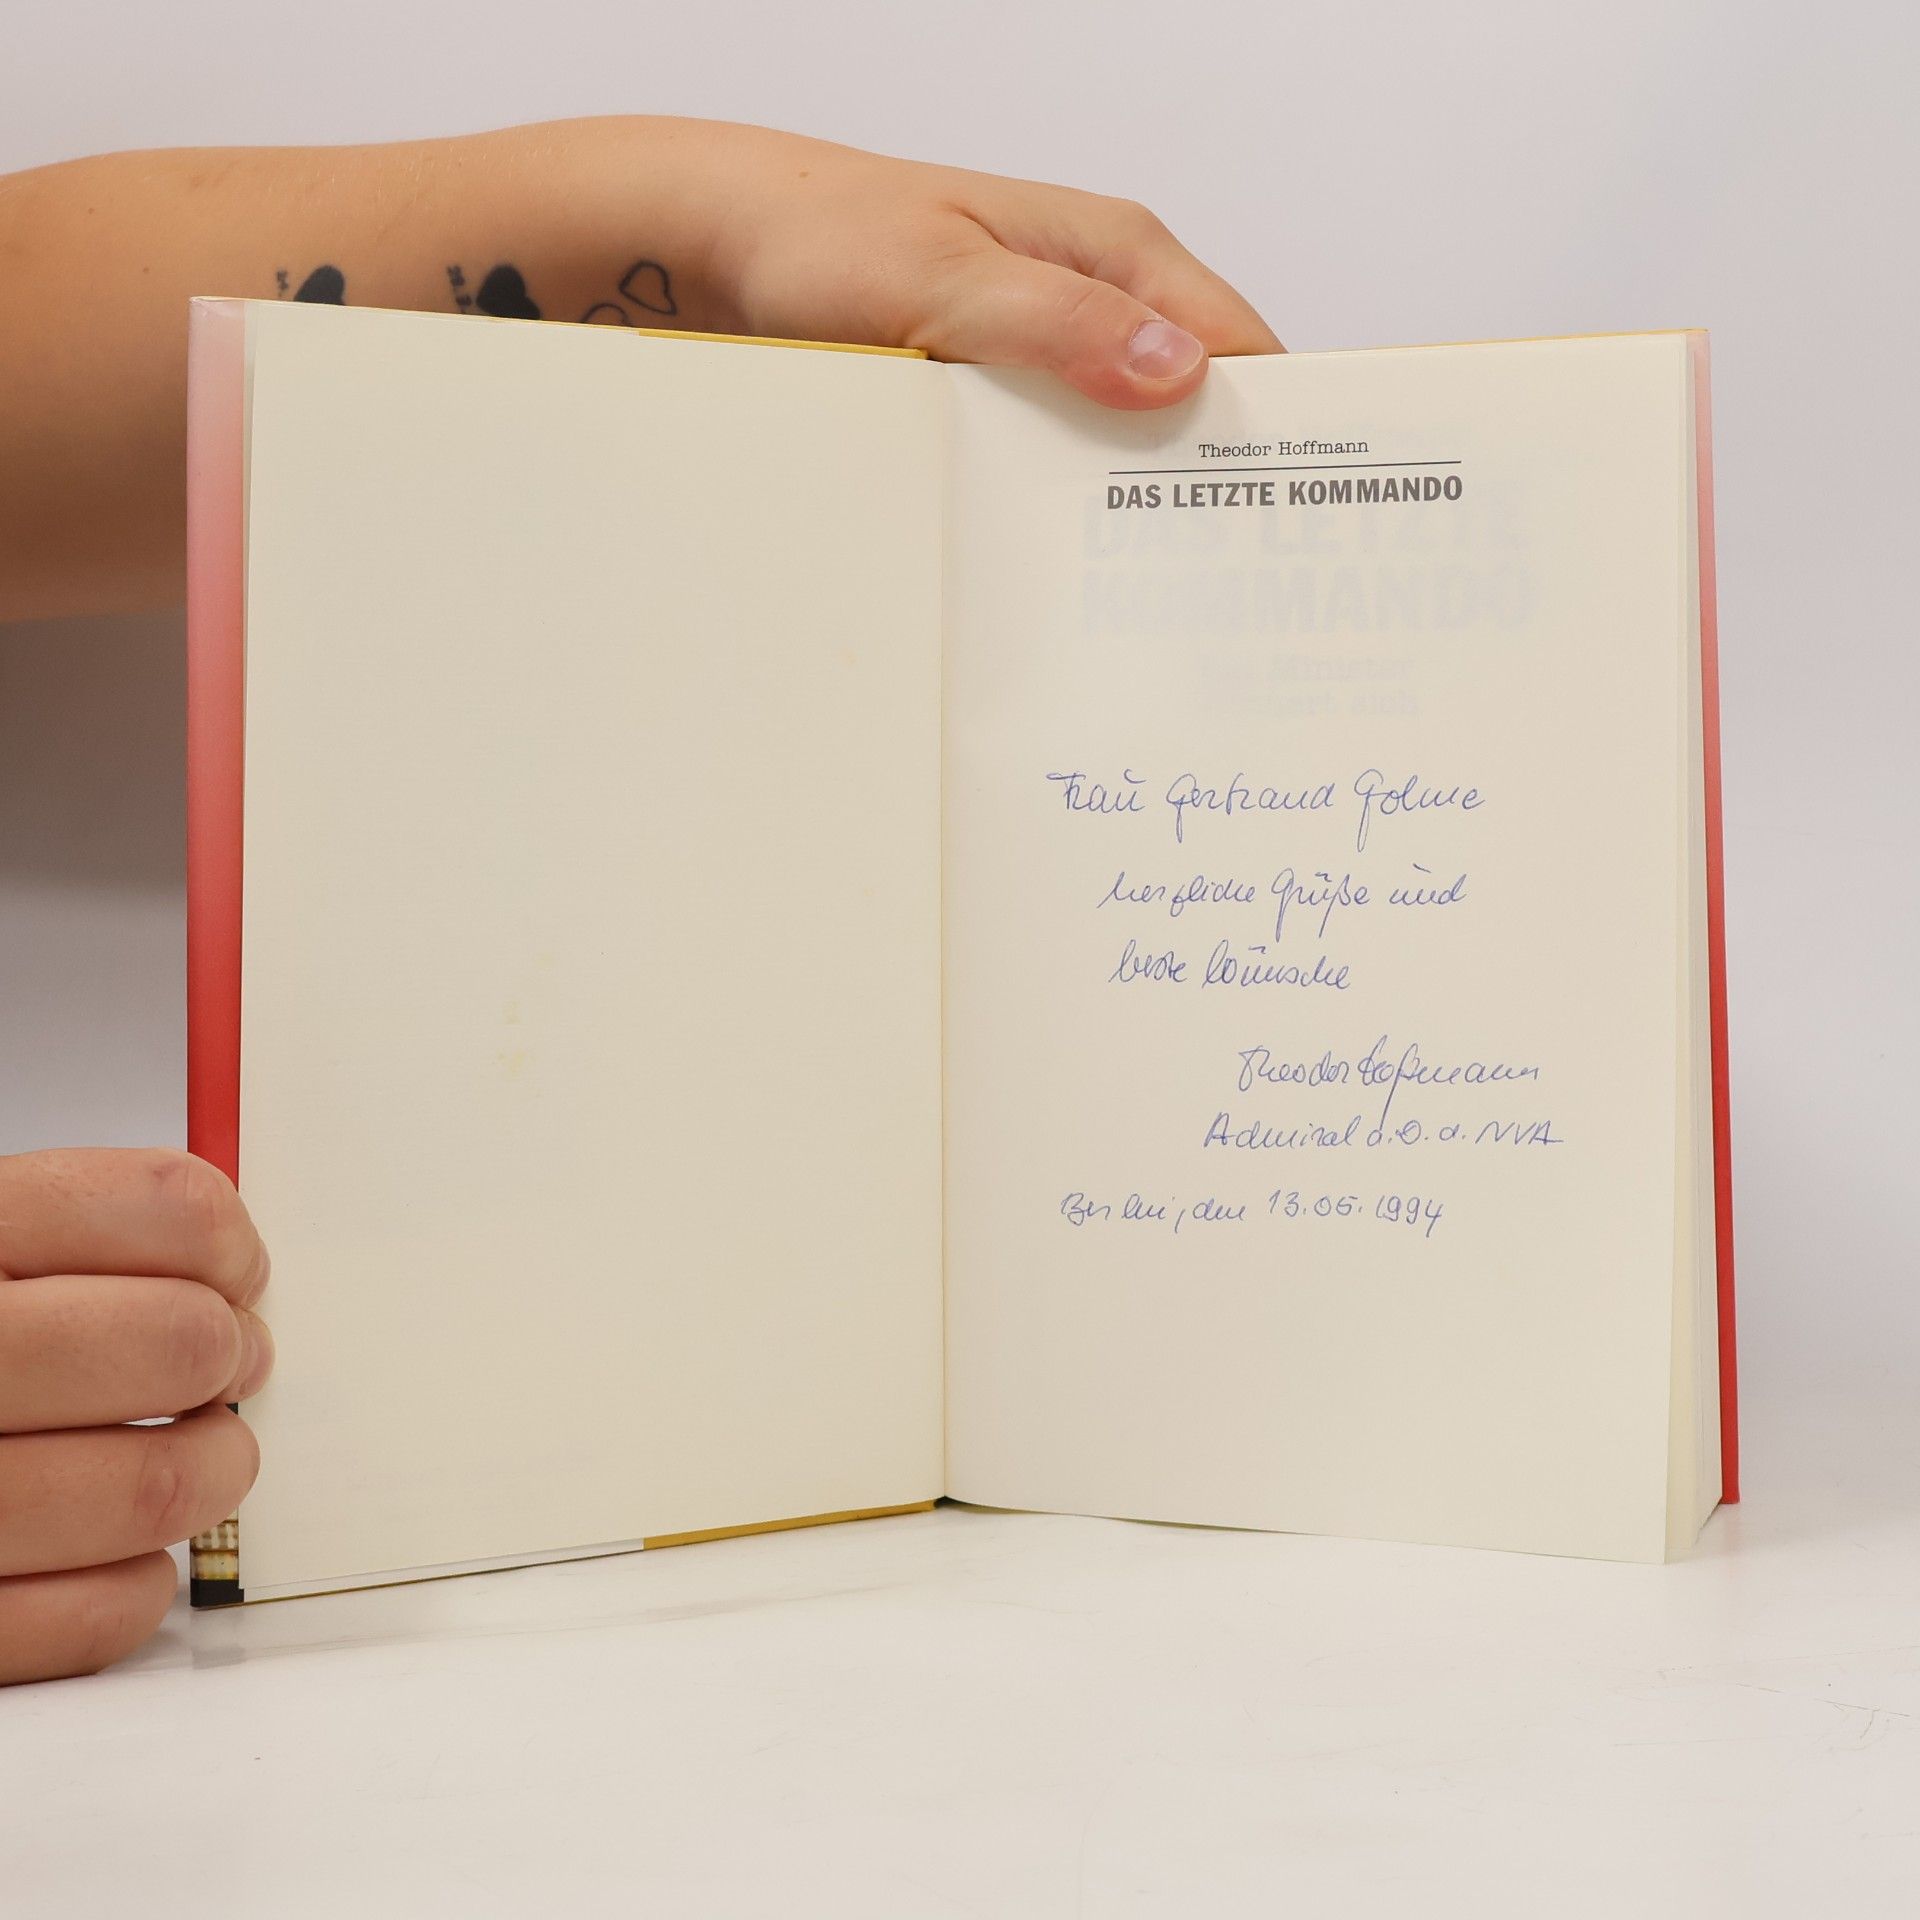 Theodor Hoffmann
DAS LETZTE KOMMANDO
DAS LETZTE
KOMMANDO
Minister
sich
Frau Gertraud Golme
herzliche Grüße und
beste Wünsche
Theodor Hoffmann
Admiral a.D. d. NVA
Berlin, den 13.05.1994